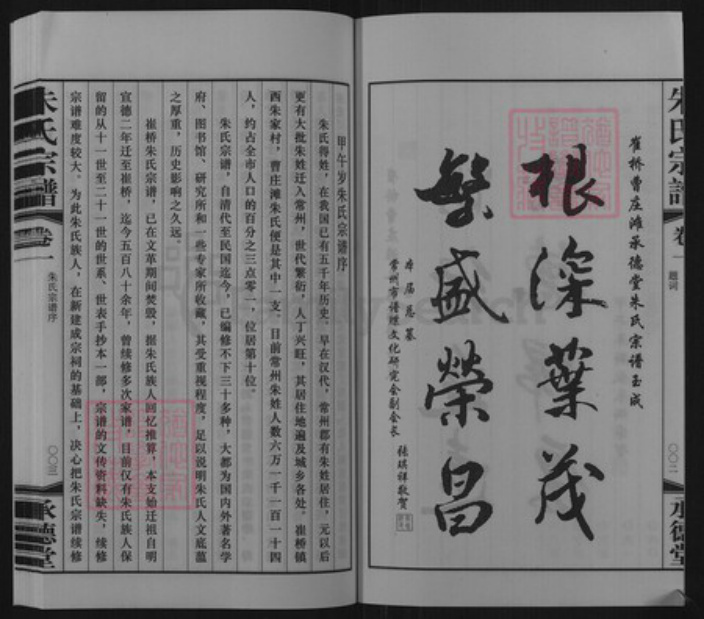 朱氏宗譜
卷一
題词
〇〇二
承德堂
崔桥曹庄滩承德堂朱氏宗谱玉成
根深葉茂
繁盛榮昌
本届总纂
常州市谱牒文化研究会副会长
张琪祥敬贺
甲午岁朱氏宗谱序
朱氏得姓，在我国已有五千年历史。早在汉代，常州郡有朱姓居住，元以后
更有大批朱姓迁入常州，世代繁衍，人丁兴旺，其居住地遍及城乡各处。崔桥镇
西朱家村，曹庄滩朱氏便是其中一支。目前常州朱姓人数六万一千一百一十四
人，约占全市人口的百分之三点零一，位居第十位。
朱氏宗谱，自清代至民国迄今，已编修不下三十多种，大都为国内外著名学
府、图书馆、研究所和一些专家所收藏，其受重视程度，足以说明朱氏人文底蕴
之厚重，历史影响之久远。
崔桥朱氏宗谱，已在文革期间焚毁，据朱氏族人回忆推算，本支始迁祖自明
宣德二年迁至崔桥，迄今五百八十余年，曾续修多次家谱，目前仅有朱氏族人保
留的从十一世至二十一世的世系、世表手抄本一部，宗谱的文传资料缺失，续修
宗谱难度较大。为此朱氏族人，在新建成宗祠的基础上，决心把朱氏宗谱续修
朱氏宗譜
卷一
朱氏宗谱序
〇〇三
承德堂